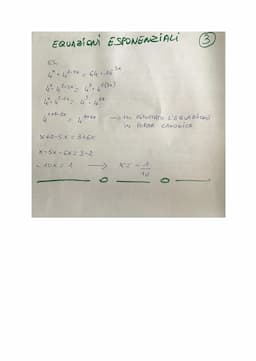 EQUAZIONI ESPONENZIALI 3
ES.
4^x · 4^2-5x = 64 · 16^3x
4^x · 4^2-5x = 4^3 · 4^2(3x)
4^x · 4^2-5x = 4^3 · 4^6x
4^x+2-5x = 4^3+6x → L'EQUAZIONE
IN FORMA CANONICA
x+2-5x = 3+6x
x-5x-6x = 3-2
-10x = 1 → x = - 1/10